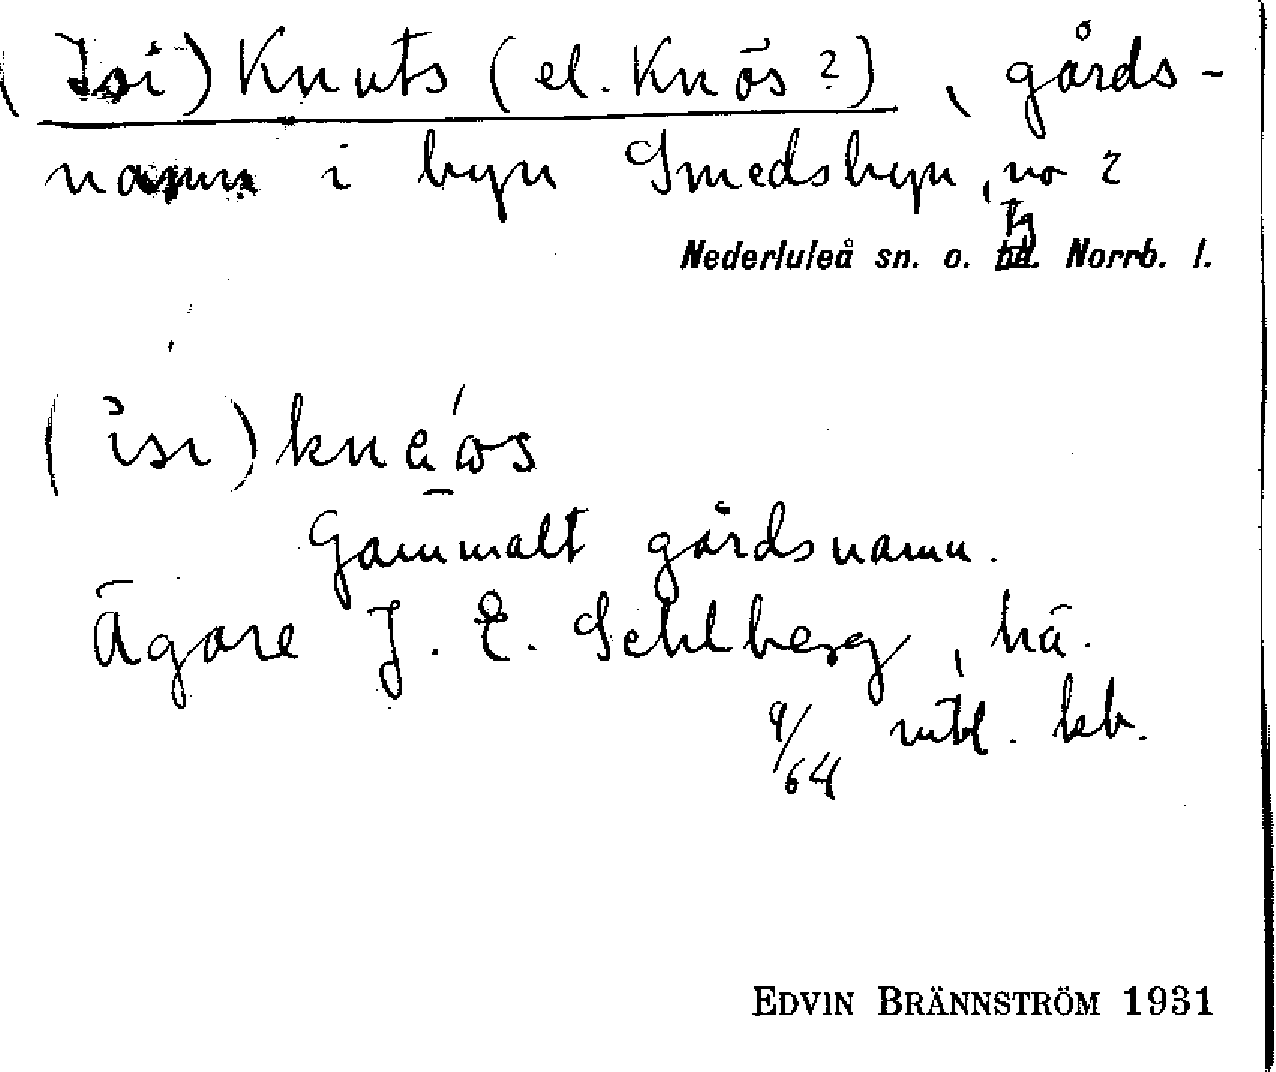 (Isi) Knuts (el. Knös?), gårds-
namn i byn Smedsbyn, no 2
Nederluleå sn. o. tg. Norrb. l.
(isi) knéos
Gammalt gårdsnamn.
Ägare J. E. Sehlberg, hä.
9/64 mtl. kb.
EDVIN BRÄNNSTRÖM 1931